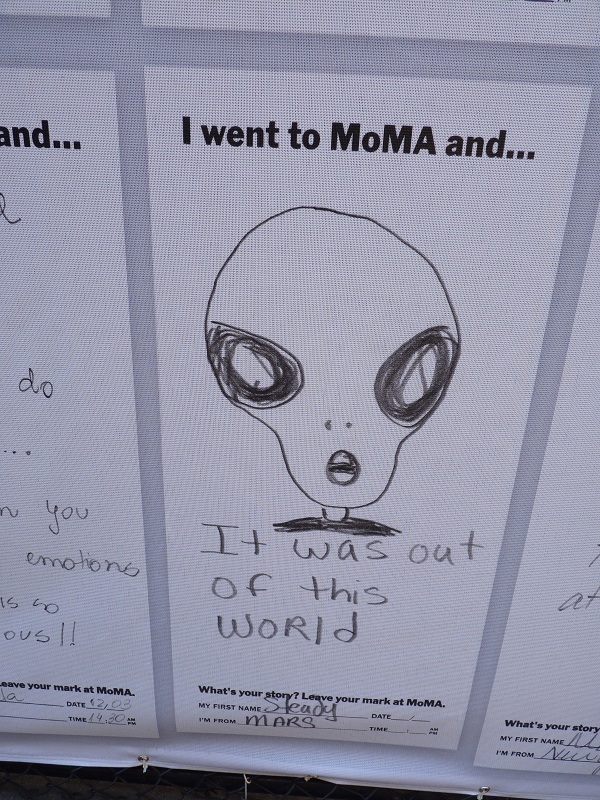 and...
do
...
you
emotions
is so
ous!!
eave your mark at MoMA.
DATE 12,03
TIME 14:30 AM PM
I went to MoMA and...
It was out
of this
WORld
What's your story? Leave your mark at MoMA.
MY FIRST NAME Steady DATE /
I'M FROM MARS TIME : AM PM
at
What's your story
MY FIRST NAME
I'M FROM